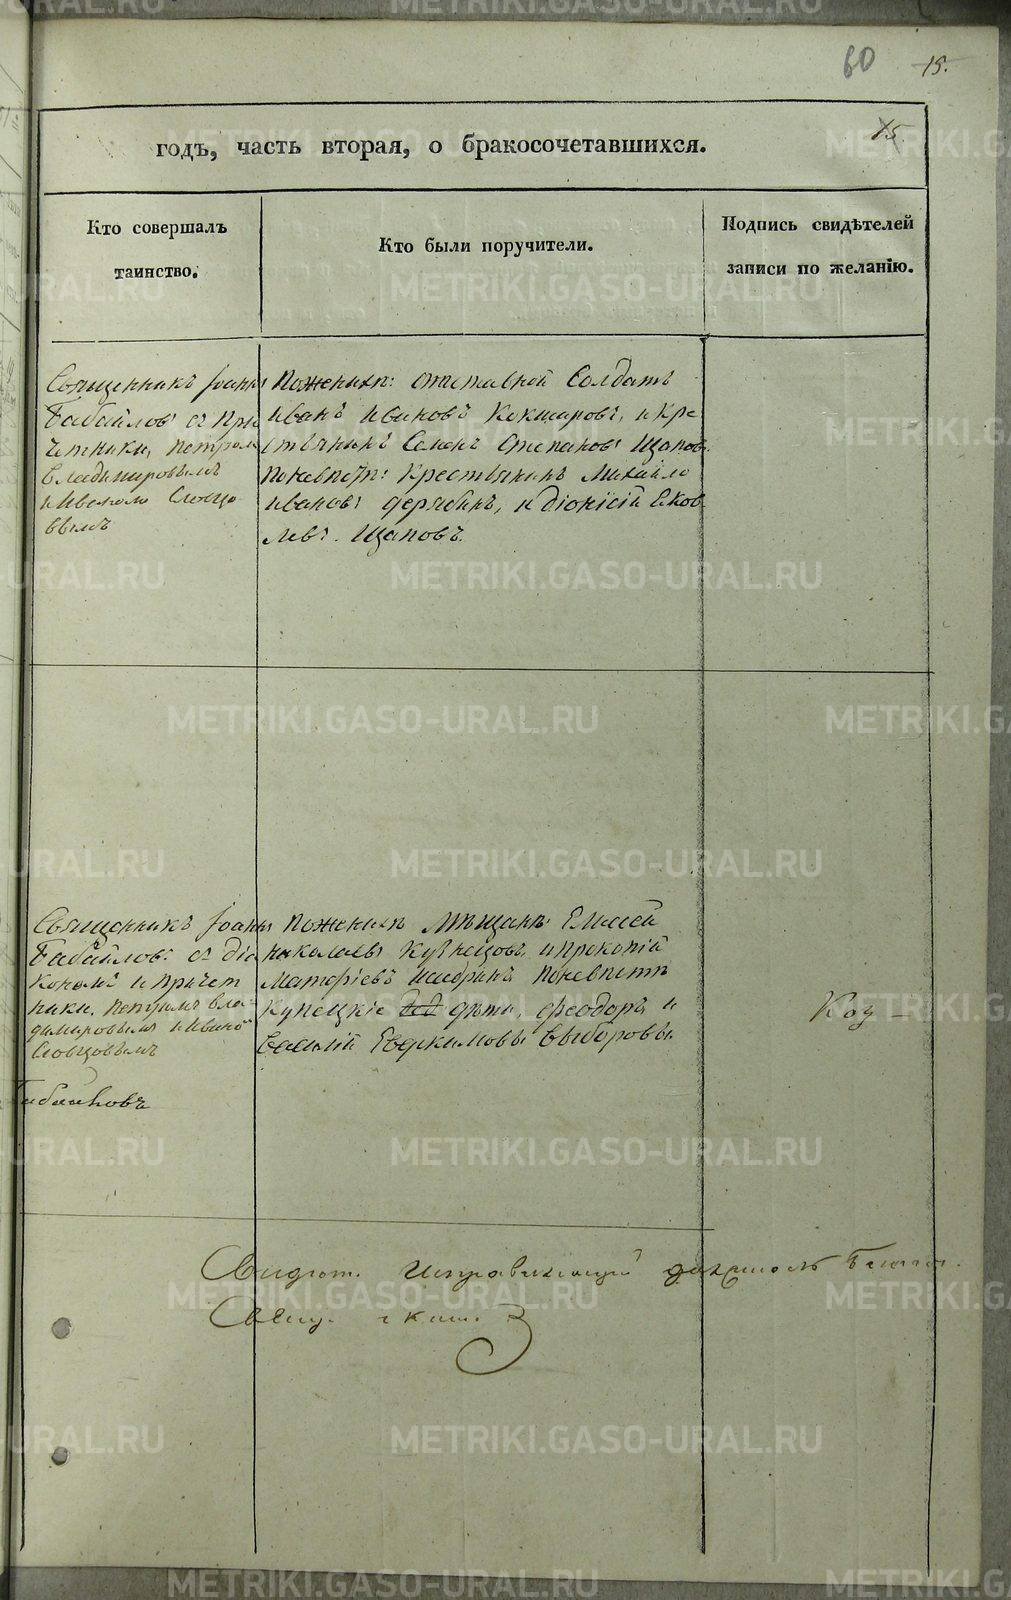 60 15.
15
годъ, часть вторая, о бракосочетавшихся.
Кто совершалъ
таинство.
Кто были поручители.
Подпись свидѣтелей
записи по желанію.
Священникъ Іоаннъ
Бабайловъ съ при
четники, Петромъ
Владимировымъ
и Иваномъ Словцо
вымъ
Пожених: отставной Солдатъ
Иванъ Ивановъ Кокшаровъ, и Кре
стьянинъ Семенъ Степановъ Щапов.
Поневѣст: Крестьянинъ Михайло
Ивановъ Дерябинъ, и Діонисій Яков
левъ. Щаповъ.
Священникъ Іоаннъ
Бабайловъ: съ діа
кономъ и причет
ники, Петромъ Вла-
димировымъ и Иваномъ
Словцовымъ
Пожених Мѣщанъ: Елисей
Николаевъ Кузнецовъ, и Прокопій
Матфіевъ Шабринъ Поневѣстѣ
Купецкіе дѣти, Феодоръ и
Василій Евдокимовы Выборовы.
METRIKI.GASO-URAL.RU